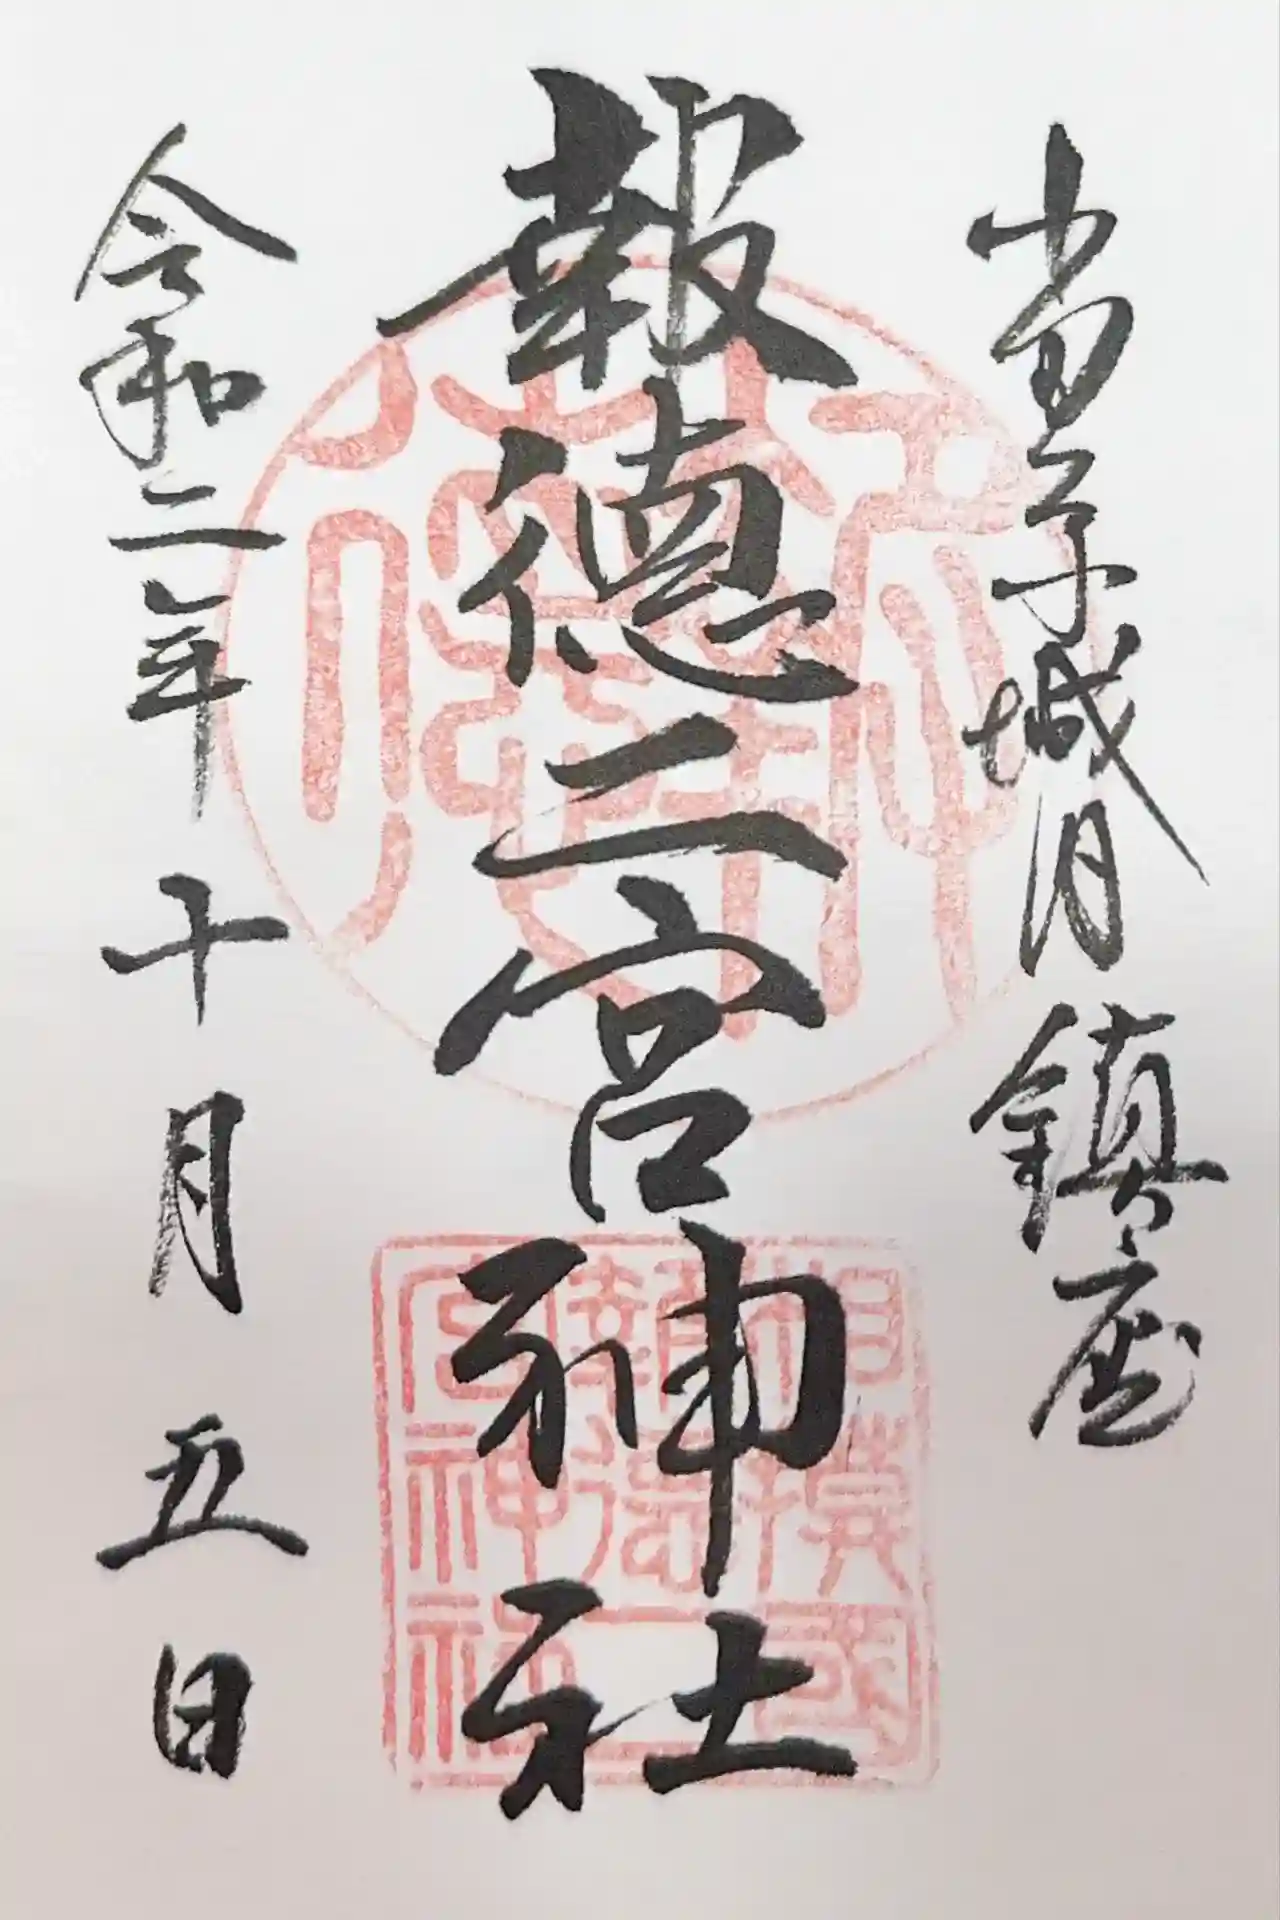 小田原城内鎮座
報徳二宮神社
令和二年十月五日
相模國
報徳二
宮神社